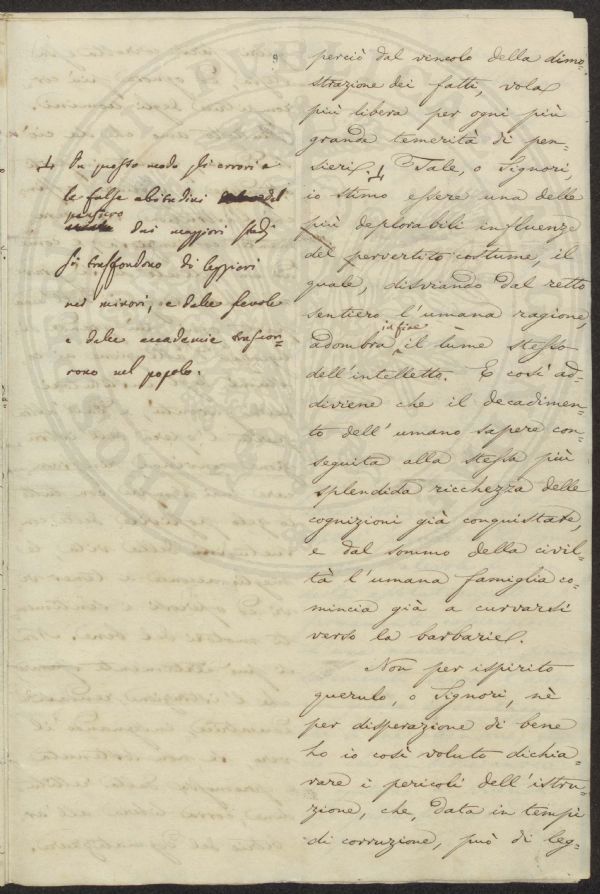 perciò dal vencolo della dimo=
strazione dei fatti, vola
più libera per ogni più
grande temerità di pen=
sieri. + Tale, o Signori,
io stimo essere una delle
più deplorabili influenze
del pervertito costume, il
quale, disviando dal retto
sentiero l'umana ragione,
adombra infine il lume stesso
dell'intelletto. E così ad=
diviene che il decadimen=
to dell'umano sapere con=
seguita alla stessa più
splendida ricchezza delle
cognizioni già conquistate,
e dal sommo della civil=
tà l'umana famiglia co=
mincia già a curvarsi
verso la barbarie.
Non per ispirito
querulo, o Signori, nè
per disperazione di bene
ho io così voluto dichia=
rare i pericoli dell'istru=
zione, che, data in tempi
di corruzione, può di leg=
+ In questo modo gli errori e
le false abitudini del
pensiero dai maggiori studj
si trasfondono di leggieri
nei minori, e dalle scuole
e dalle accademie trascor=
rono nel popolo.